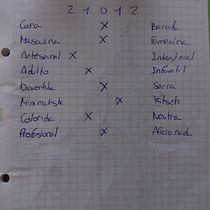 2 1 0 1 2
Cara X Barata
Masculina X Femenina
Artesanal X Industrial
Adulto X Infantil
Divertida X Seria
Minimalista X Kitsch
Colorida X Neutra
Profesional X Aficionada